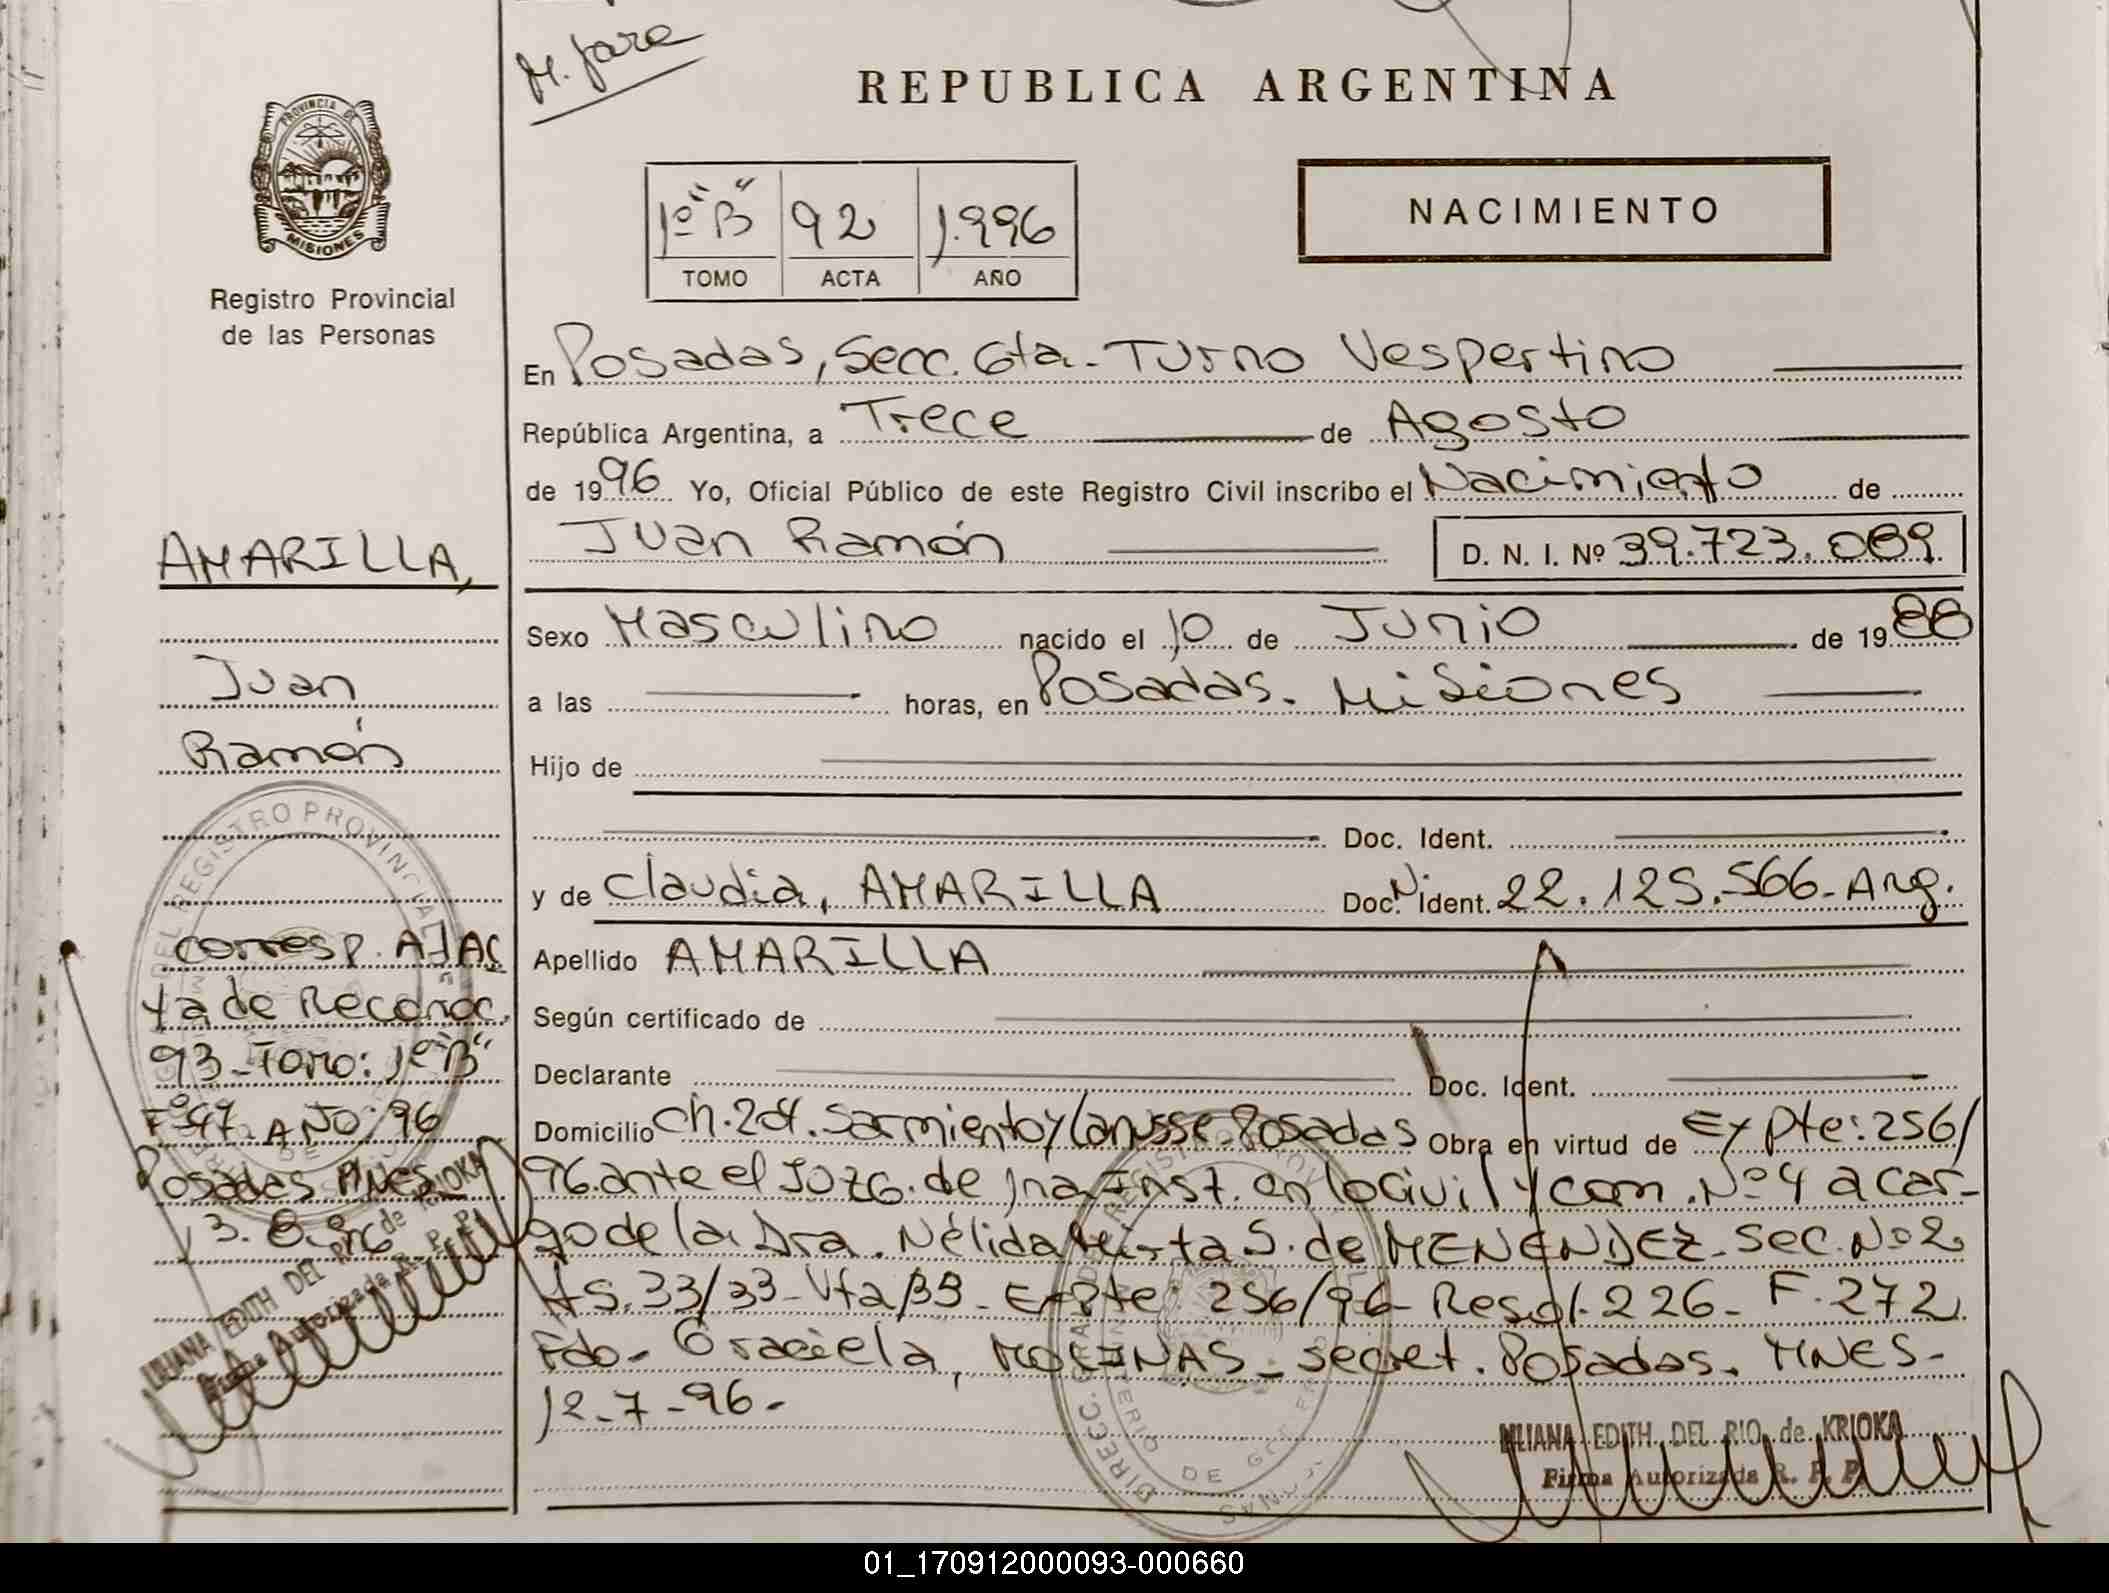 M. Jara
REPUBLICA ARGENTINA
PROVINCIA DE
MISIONES
Registro Provincial
de las Personas
1º "B" 92 1.996
TOMO ACTA AÑO
NACIMIENTO
En Posadas, Secc. 6ta. Turno Vespertino
República Argentina, a Trece de Agosto
de 1996 Yo, Oficial Público de este Registro Civil inscribo el Nacimiento de
Juan Ramón D. N. I. Nº 39.723.089
Sexo Masculino nacido el 10 de Junio de 1988
a las horas, en Posadas. Misiones
Hijo de
Doc. Ident.
y de Claudia, AMARILLA Doc. N. Ident. 22.125.566-Arg.
Apellido AMARILLA
Según certificado de
Declarante Doc. Ident.
Domicilio Ch. Sarmiento y Lanusse-Posadas Obra en virtud de Expte: 256/
96.ante el Juzg. de 1ra Inst. en lo Civil y com. Nº 4 a car-
go de la Dra. Nélida S. de MENENDEZ-Sec. Nº 2.
AS. 33/33-Vta/33-Expte: 256/96-Resol. 226-F. 272.
Fdo-Graciela, MOLINAS-secret. Posadas. MNES-
12-7-96-
LILIANA EDITH DEL RIO de KRIOKA
Firma Autorizada R. P. P.
AMARILLA,
Juan
Ramón
Corresp. A/AC
ta de Reconoc.
93-Tomo: 1º "B"
Fº 47. AÑO: 96
Posadas MNES
13.8.96
LILIANA EDITH DEL RIO de KRIOKA
Firma Autorizada R. P. P.
01_170912000093-000660